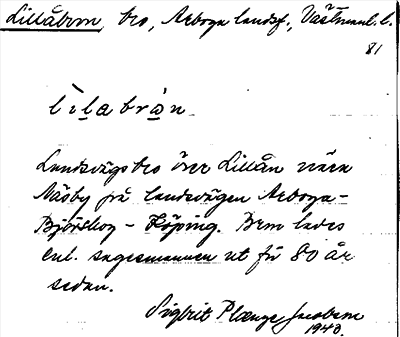 Lillåbron, bro, Arboga landsf., Västmanl. l.
81
lìlabrån
Landsvägsbro över Lillån nära
Näsby på landsvägen Arboga-
Björskog - Köping. Bron lades
enl. sagesmannen ut för 80 år
sedan.
Sigbrit Plænge Jacobson
1940.